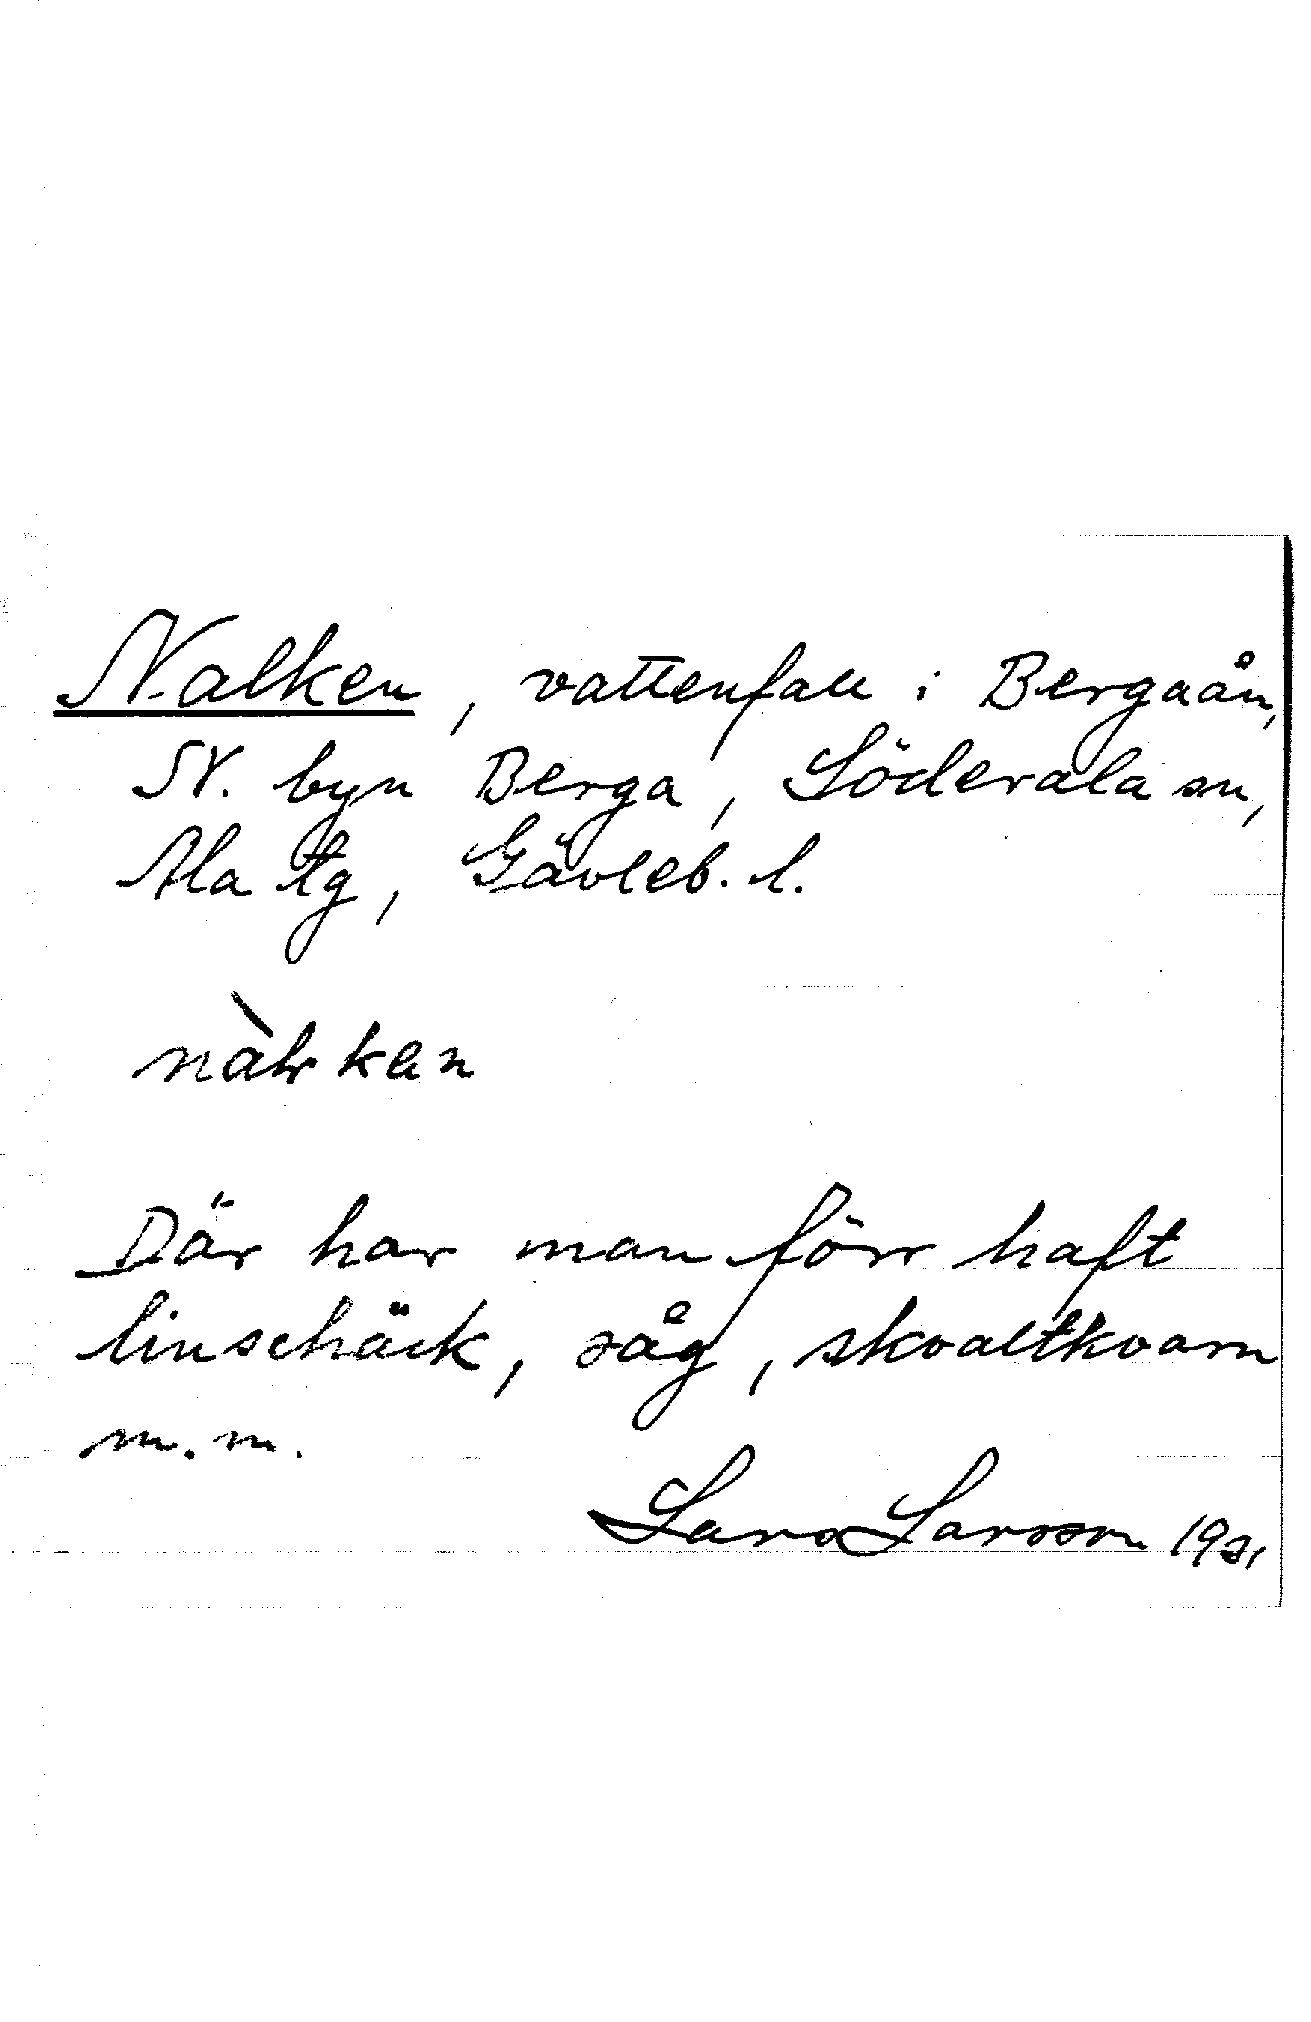 Nalken, vattenfall i Bergaån,
N. byn Berga, Söderala sn,
Ala tg, Gävleb. l.
Där har man förr haft
linschäck, såg, skvaltkvarn
m.m.
Lars Larsson